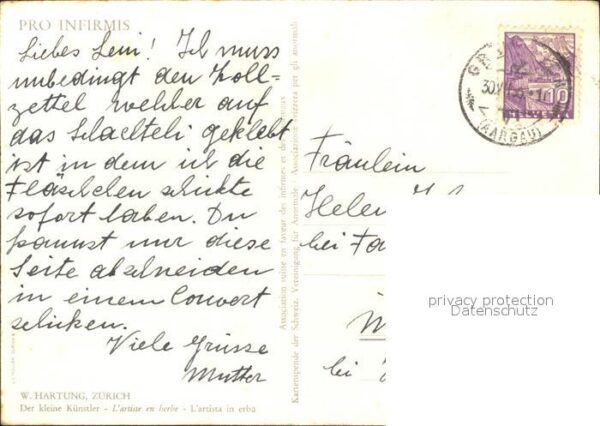 PRO INFIRMIS
Liebes Leni! Ich muss
unbedingt den Zoll-
zettel welcher auf
das Schachteli geklebt
ist in dem ich die
Fläschchen schickte
sofort haben. Du
kannst nur diese
Seite abschneiden
in einem Couvert
schicken.
Viele Grüsse
Mutter
W. HARTUNG, ZÜRICH
Der kleine Künstler - L'artiste en herbe - L'artista in erba
Association suisse en faveur des infirmes et des anormaux
Kartenspende der Schweiz. Vereinigung für Anormale Associazione Svizzera per gli anormali
(AARGAU)
10
HELVETIA
Fräulein
bei
bei
privacy protection
Datenschutz